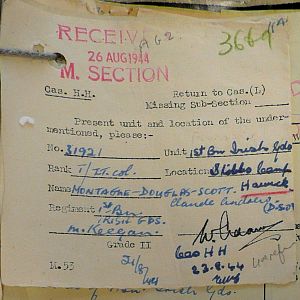 RECEIV
26 AUG 1944
M. SECTION
Cas. H.H. Return to Cas.(L)
Missing Sub-Section
Present unit and location of the under-
mentioned, please:-
No. 31921 Unit 1st Bn Irish Gds
Rank T/Lt. Col. Location Stobbs Camp
Hawick
Name MONTAGUE-DOUGLAS-SCOTT.
Claude Andrew
(D.S.O)
Regiment 1st Bn
IRISH GDS.
M. Keegan.
Grade II
Cas HH
23-8-44
M.53